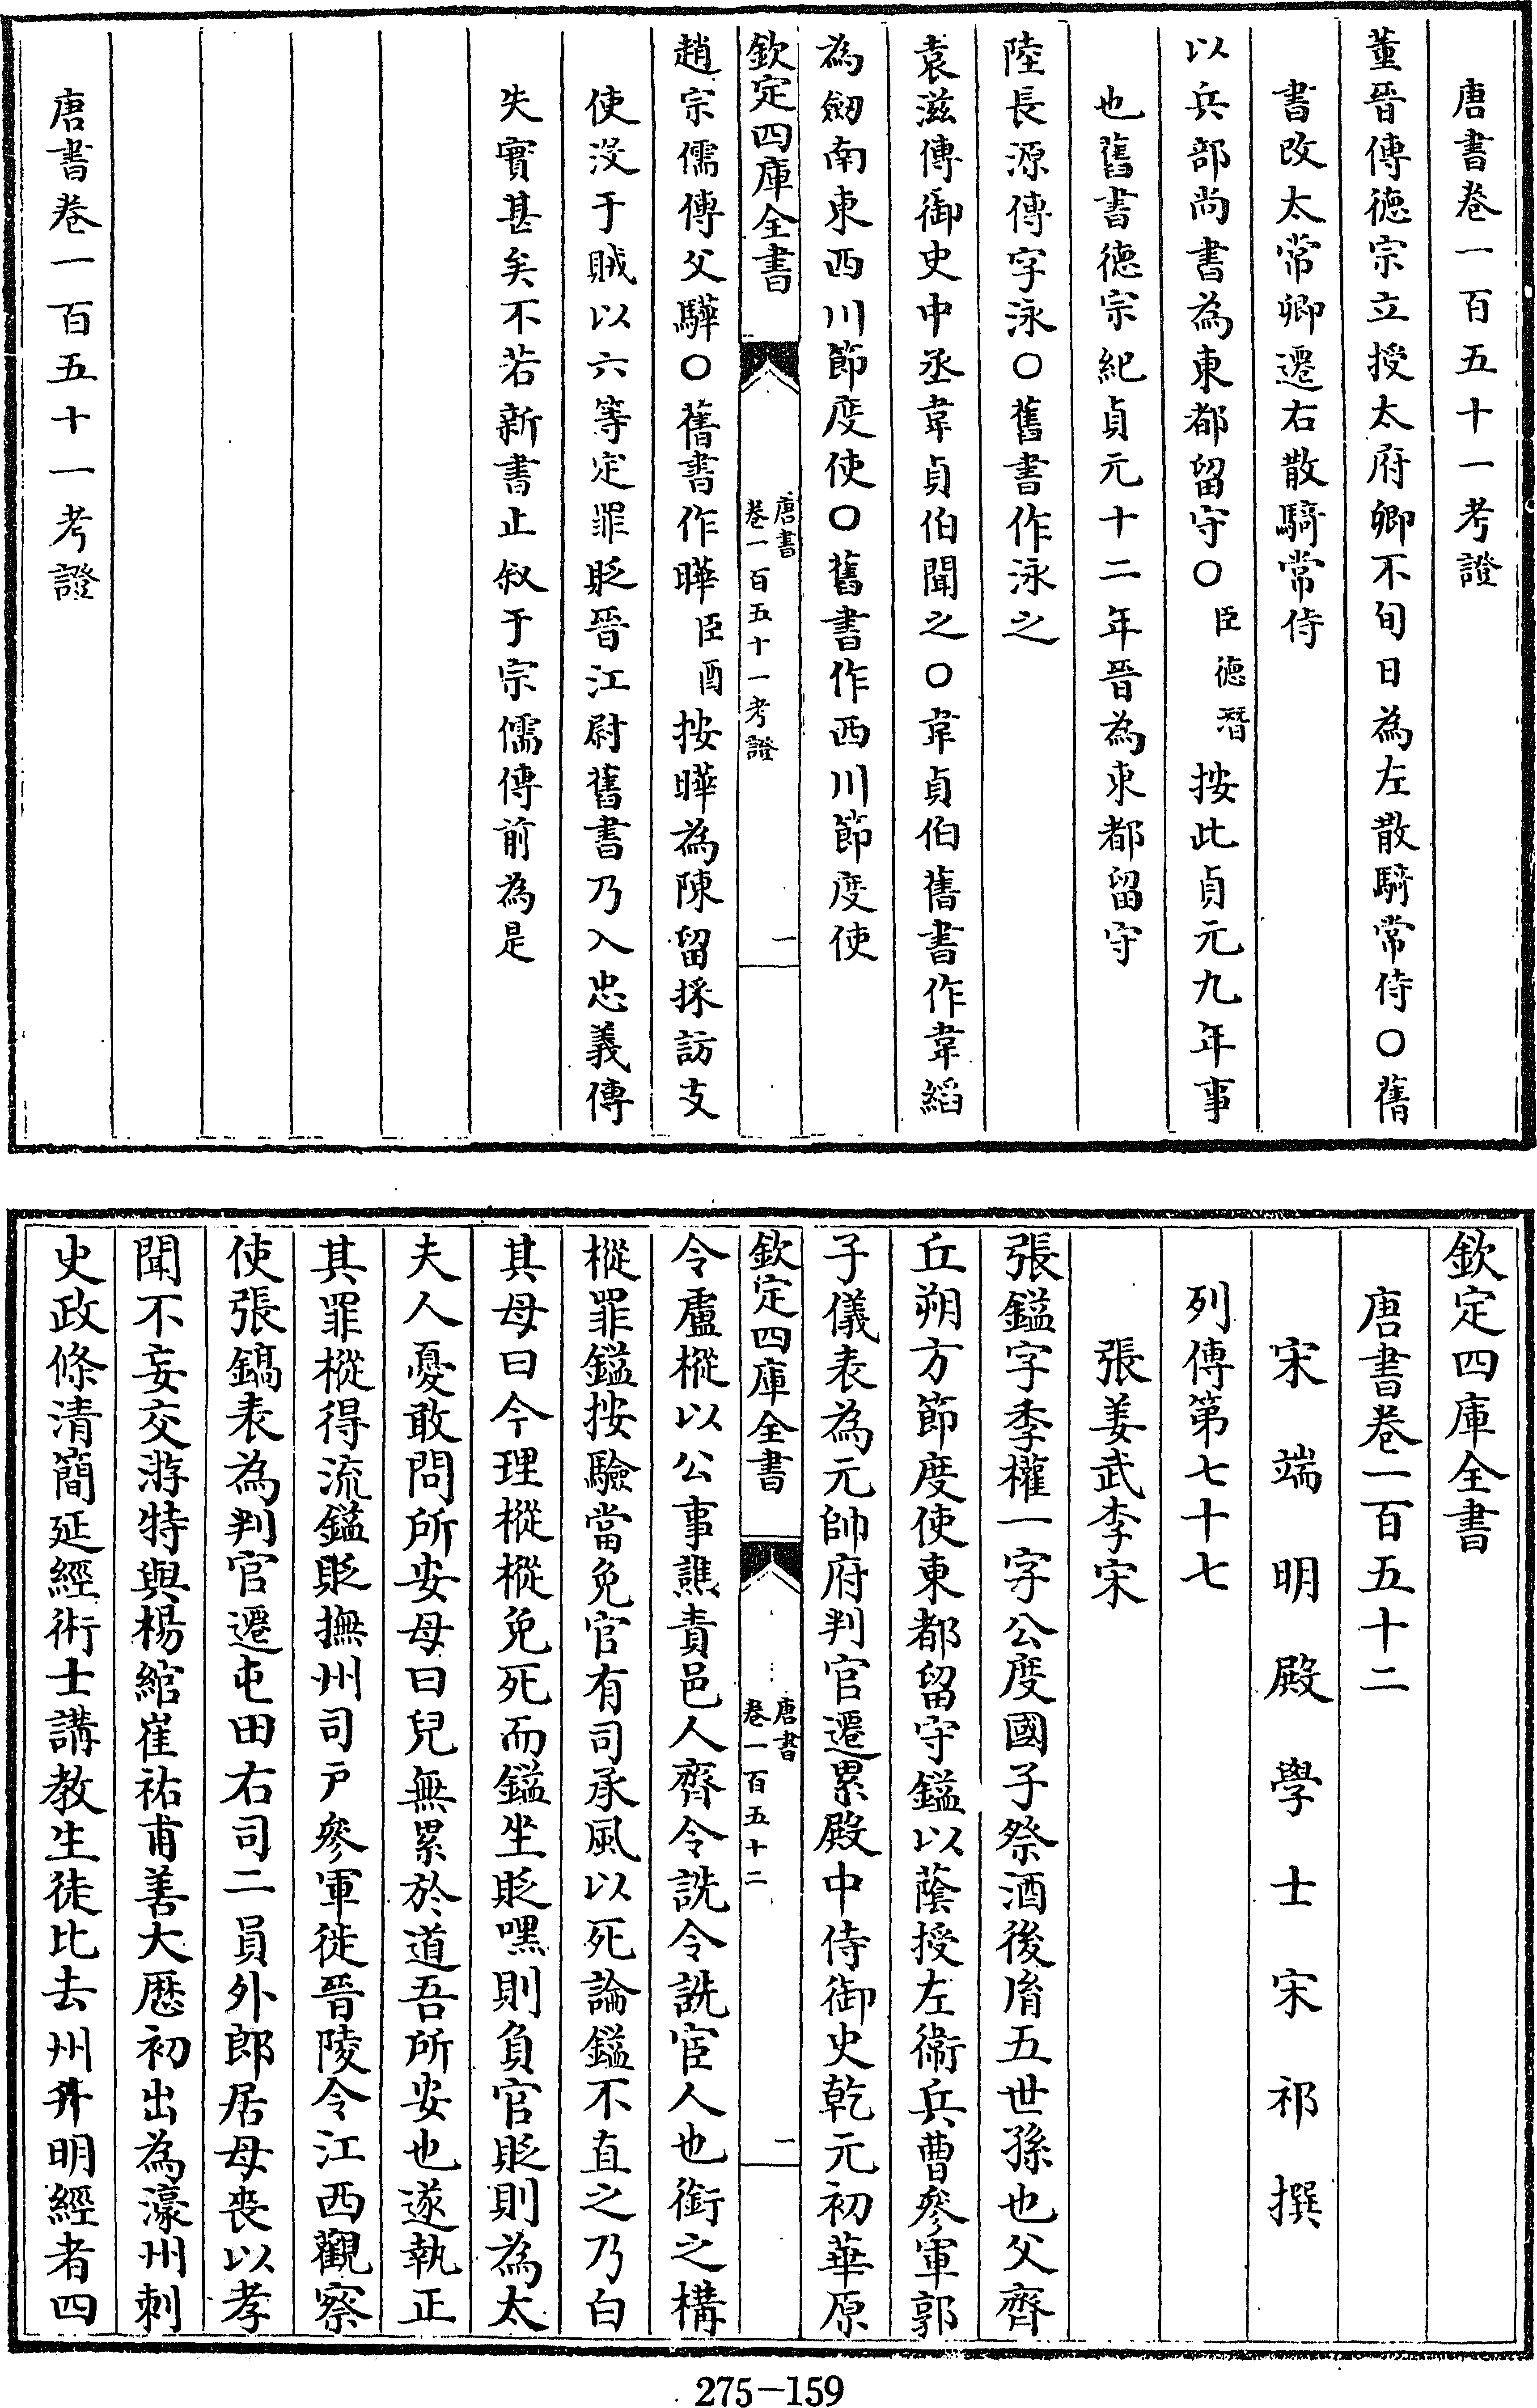 唐書卷一百五十一考證
董晉傳德宗立授太府卿不旬日為左散騎常侍○舊
書改太常卿遷右散騎常侍
以兵部尚書為東都留守○臣德潛按此貞元九年事
也舊書德宗紀貞元十二年晉為東都留守
陸長源傳字泳○舊書作泳之
袁滋傳御史中丞韋貞伯聞之○韋貞伯舊書作韋縚
為劒南東西川節度使○舊書作西川節度使
欽定四庫全書
唐書
卷一百五十一考證
一
趙宗儒傳父驊○舊書作曄臣酉按曄為陳留採訪支
使沒于賊以六等定罪貶晉江尉舊書乃入忠義傳
失實甚矣不若新書止叙于宗儒傳前為是
唐書卷一百五十一考證
欽定四庫全書
唐書卷一百五十二
宋端明殿學士宋祁撰
列傳第七十七
張姜武李宋
張鎰字季權一字公度國子祭酒後胤五世孫也父齊
丘朔方節度使東都留守鎰以蔭授左衛兵曹參軍郭
子儀表為元帥府判官遷累殿中侍御史乾元初華原
欽定四庫全書
唐書
卷一百五十二
一
令盧樅以公事譙責邑人齊令詵令詵宦人也銜之構
樅罪鎰按驗當免官有司承風以死論鎰不直之乃白
其母曰今理樅樅免死而鎰坐貶嘿則負官貶則為太
夫人憂敢問所安母曰兒無累於道吾所安也遂執正
其罪樅得流鎰貶撫州司戶參軍徙晉陵令江西觀察
使張鎬表為判官遷屯田右司二員外郎居母喪以孝
聞不妄交游特與楊綰崔祐甫善大厯初出為濠州刺
史政條清簡延經術士講教生徒比去州升明經者四
275-159